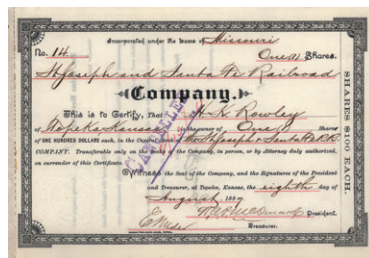 Incorporated under the Laws of Missouri
No. 14 One (1) Shares.
St Joseph and Santa Fe Railroad
Company.
This is to Certify, That H. K. Rowley
of Topeka Kansas is the owner of One Shares
of ONE HUNDRED DOLLARS each, in the Capital Stock of the St Joseph & Santa Fe R.R.
COMPANY. Transferable only on the Books of the Company, in person, or by Attorney duly authorized,
on surrender of this Certificate.
Witness the Seal of the Company, and the Signatures of the President
and Treasurer, at Topeka, Kansas, the eighth day of
August 1887
President.
E. Wilder
Treasurer.
SHARES $100 EACH.
CANCELLED